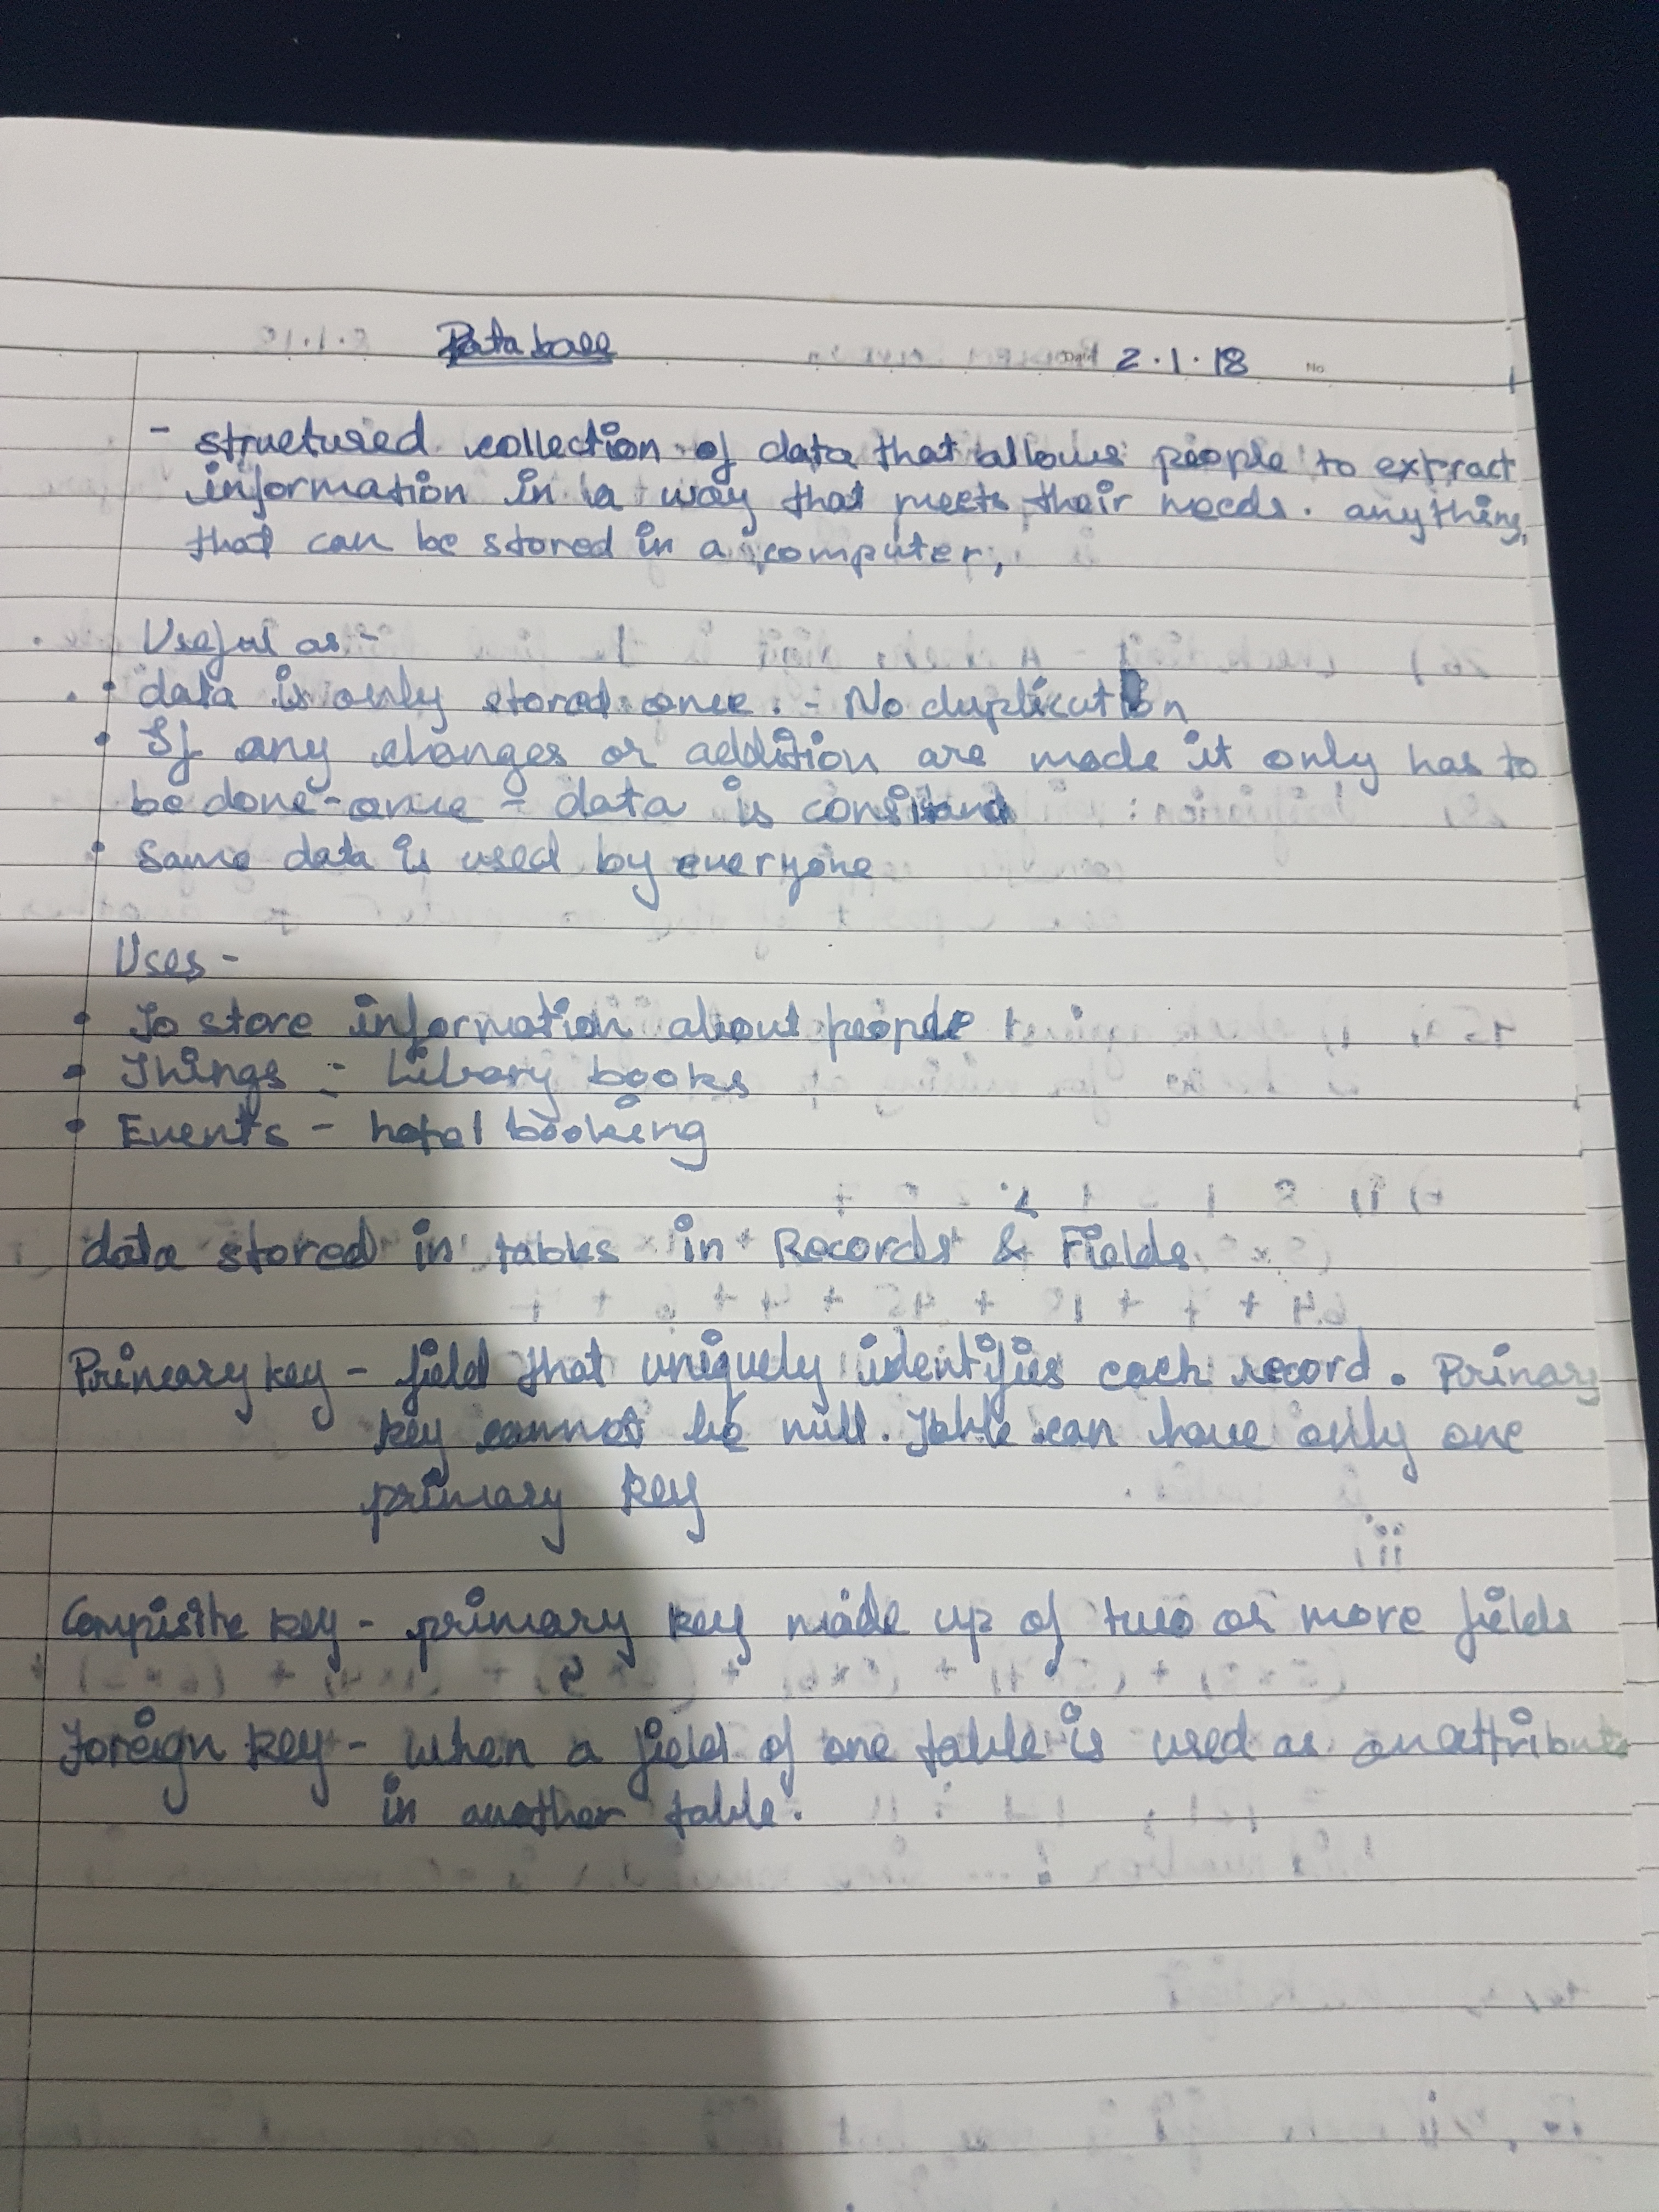 Database 2.1.18 No
- structured collection of data that allows people to extract
information in a way that meets their needs. anything
that can be stored in a computer,
Useful as -
• data is only stored once. - No duplication
• If any changes or addition are made it only has to
be done-once - data is
• Same data is used by everyone
Uses -
• To store information about people
• Things - Library books
• Events - hotel booking
data stored in tables in Records & Fields
Primary key - field that uniquely identifies each record. Primary
key cannot be null. Table can have only one
primary key
Compisite key - primary key made up of two or more fields
Foreign key - when a field of one table is used as an attribute
in another table.